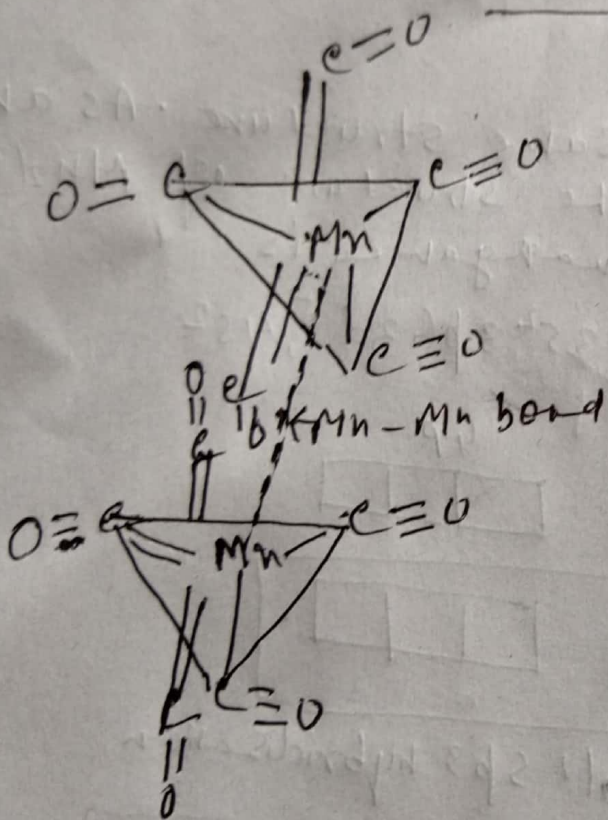 C=O
O=C
C≡O
Mn
C≡O
O
||
C
C
||
O
Mn-Mn bond
O≡C
C≡O
Mn
C≡O
C
||
O